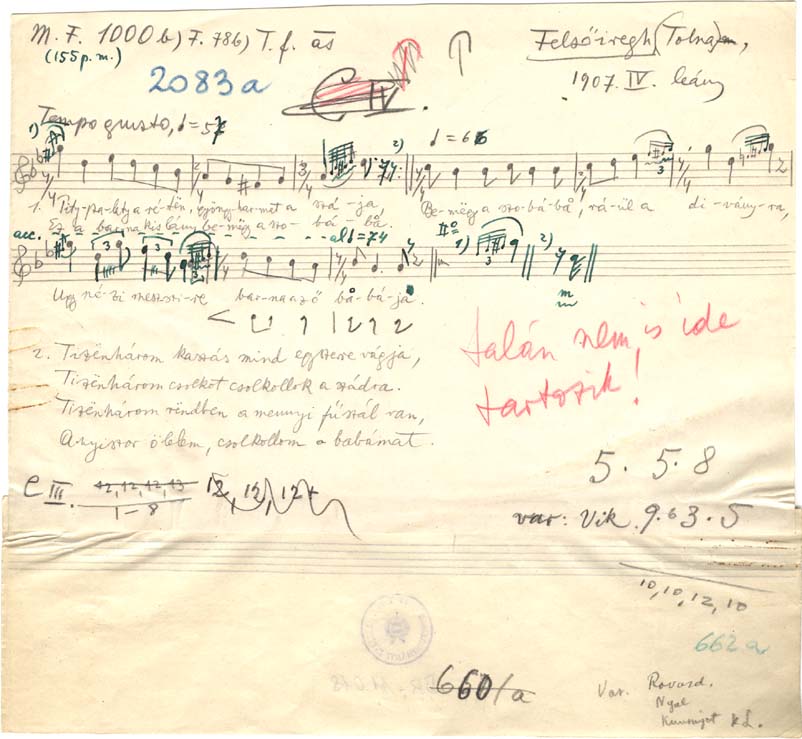 M. F. 1000 b) F. 786) T. f. ás
(155 p. m.)
2083 a
Felsőiregh (Tolna)m,
1907. IV. leány
C IV.
Tempo giusto, = 57
= 66
1. Pity-pa-laty a ré-tën, gyöngy-har-mat a szá-ja, Be-mëgy a szo-bá-bå, rá-ül a di-vány-ra,
Ez a bar-na kis lány be-mëgy a szo-bá-bå.
acc. al = 74
Ugy né-zi messzi-rë bar-na a ző bå-bá-ja.
2. Tizënhárom kaszás mind egyszerre vágja,
Tizënhárom csókot csolkollok a szádra.
Tizënhárom rëndben a mennyi fűszál van,
Annyiszor ölelem, csolkollom a babámat.
talán nem is ide
tartozik!
5. 5. 8
C III. 12, 12, 12, 13 12, 12, 12+
1-8
var: Vik. 9. 63. 5
10, 10, 12, 10
662 a
660/a
Var. Rovazd.
Nyúl